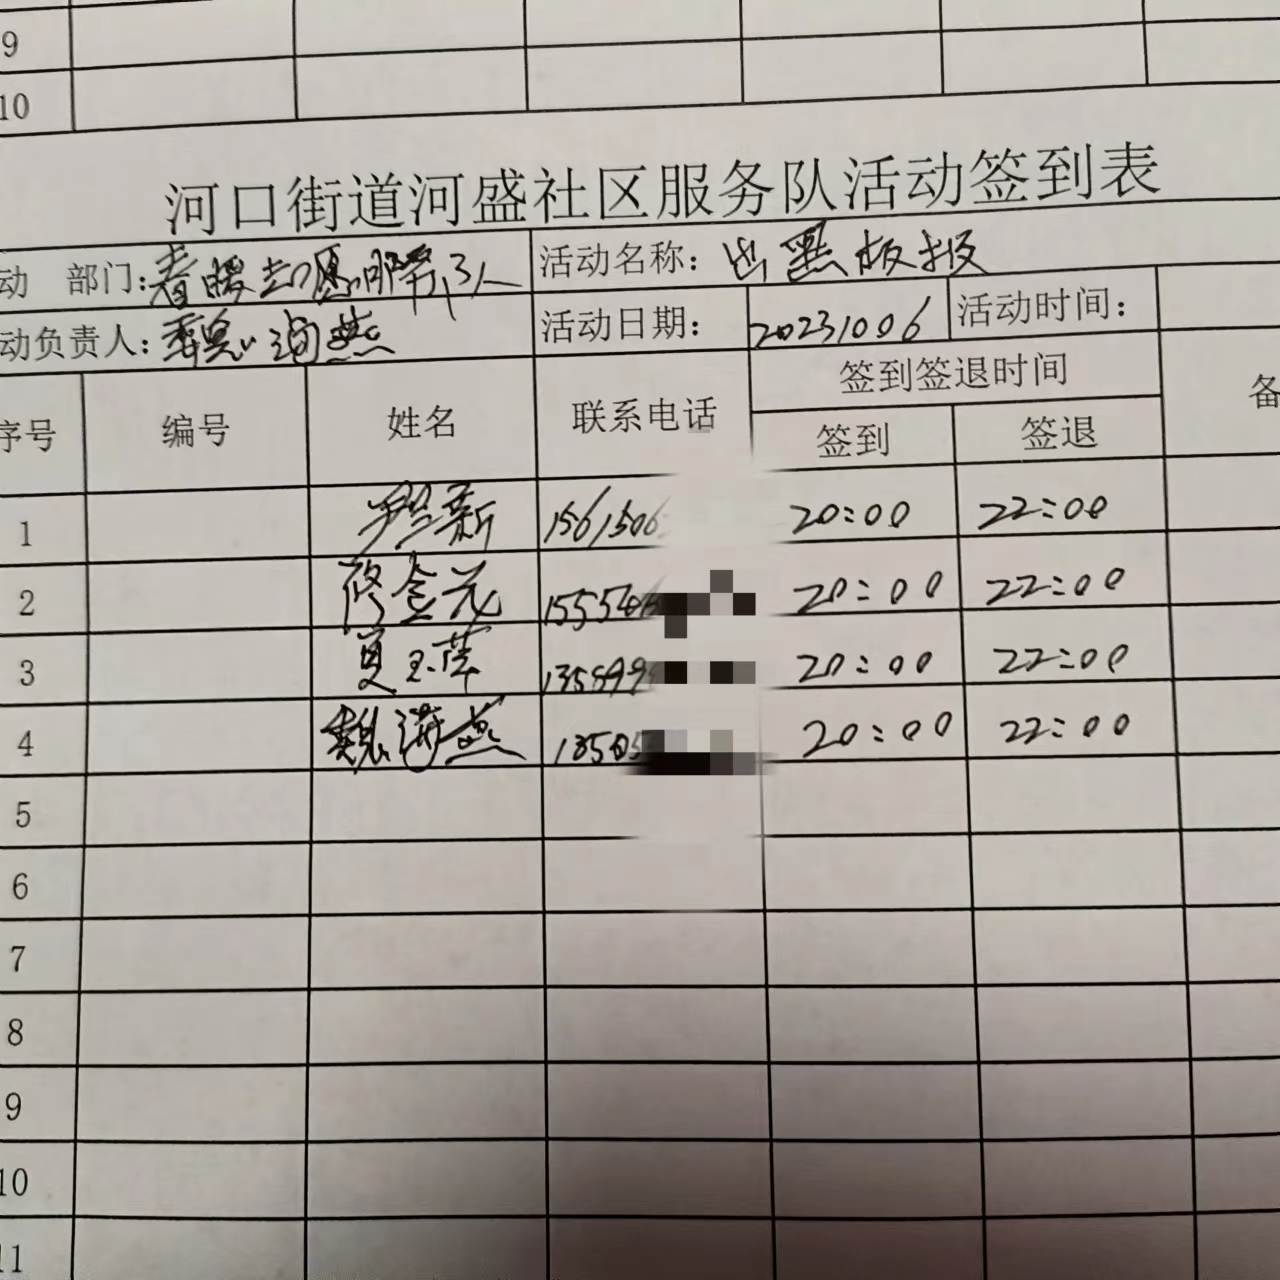 9
10
河口街道河盛社区服务队活动签到表
动 部门: 活动名称: 出黑板报
动负责人: 魏海燕 活动日期: 20231006 活动时间:
序号 编号 姓名 联系电话 签到签退时间 备
签到 签退
1 新 1561506 20:00 22:00
2 修金花 15554 20:00 22:00
3 夏玉萍 1358999 20:00 22:00
4 魏海燕 13505 20:00 22:00
5
6
7
8
9
10
11